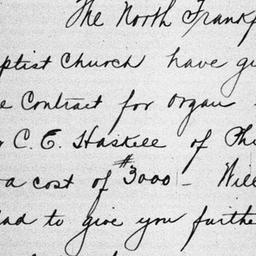 The North Frankf
ptist Church have gi
e Contract for organ
C. E. Haskell of Phi
a cost of $3000 - Will
ad to give you furthe